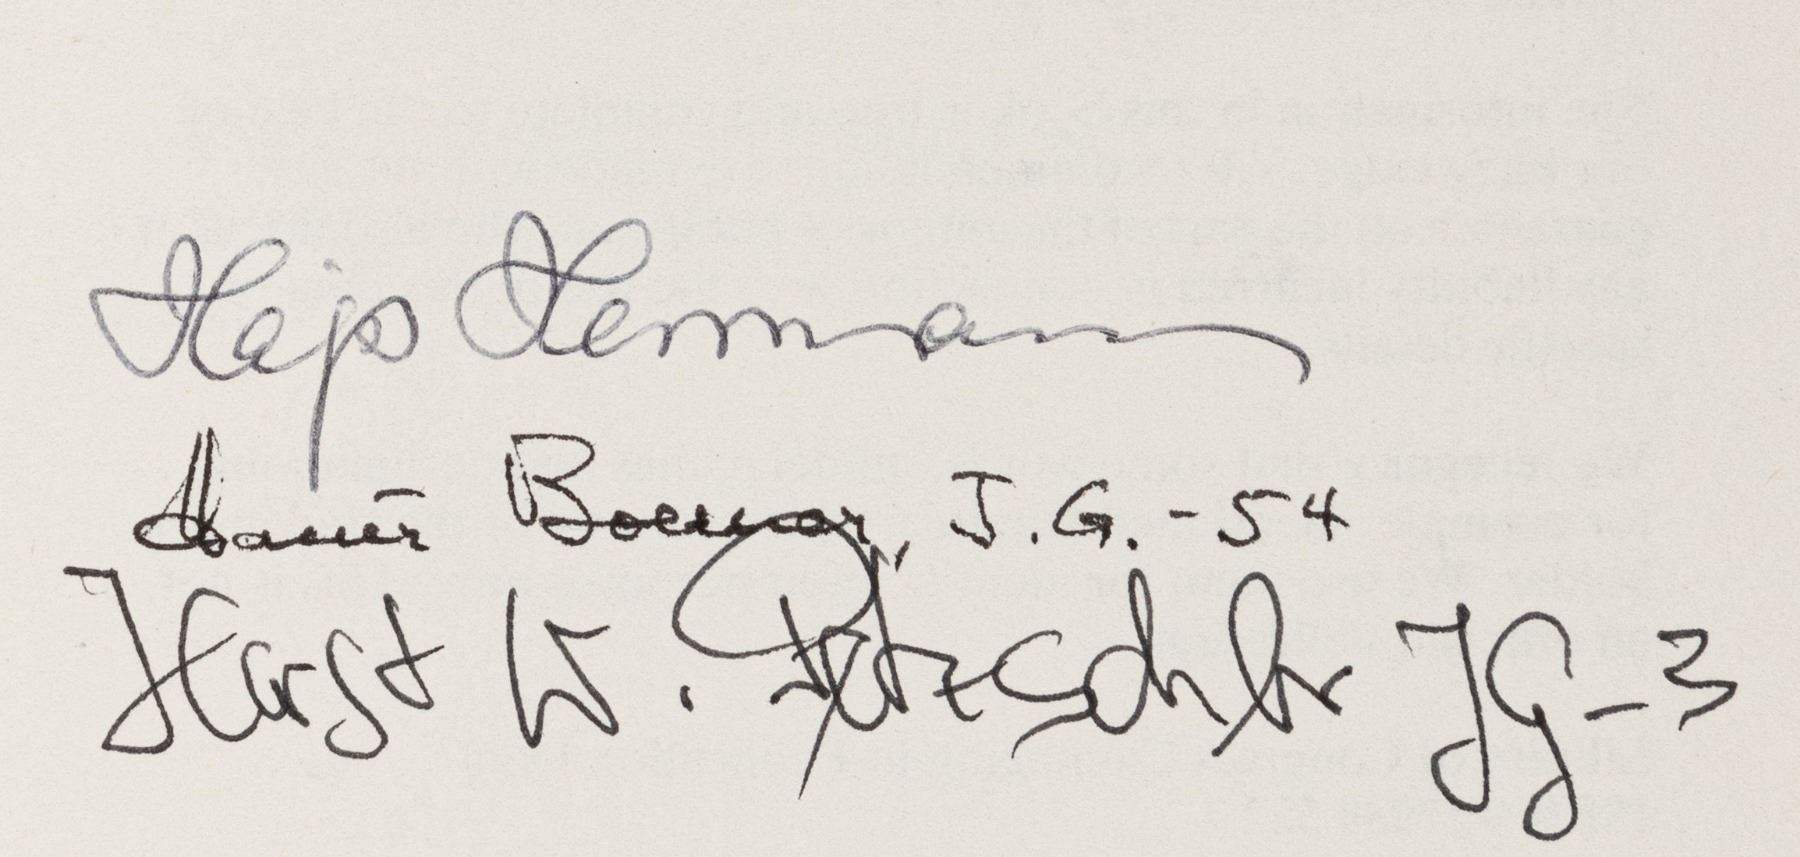 Hajo Herrmann
Boemar, J.G.-54
Horst W. Petzschler JG-3